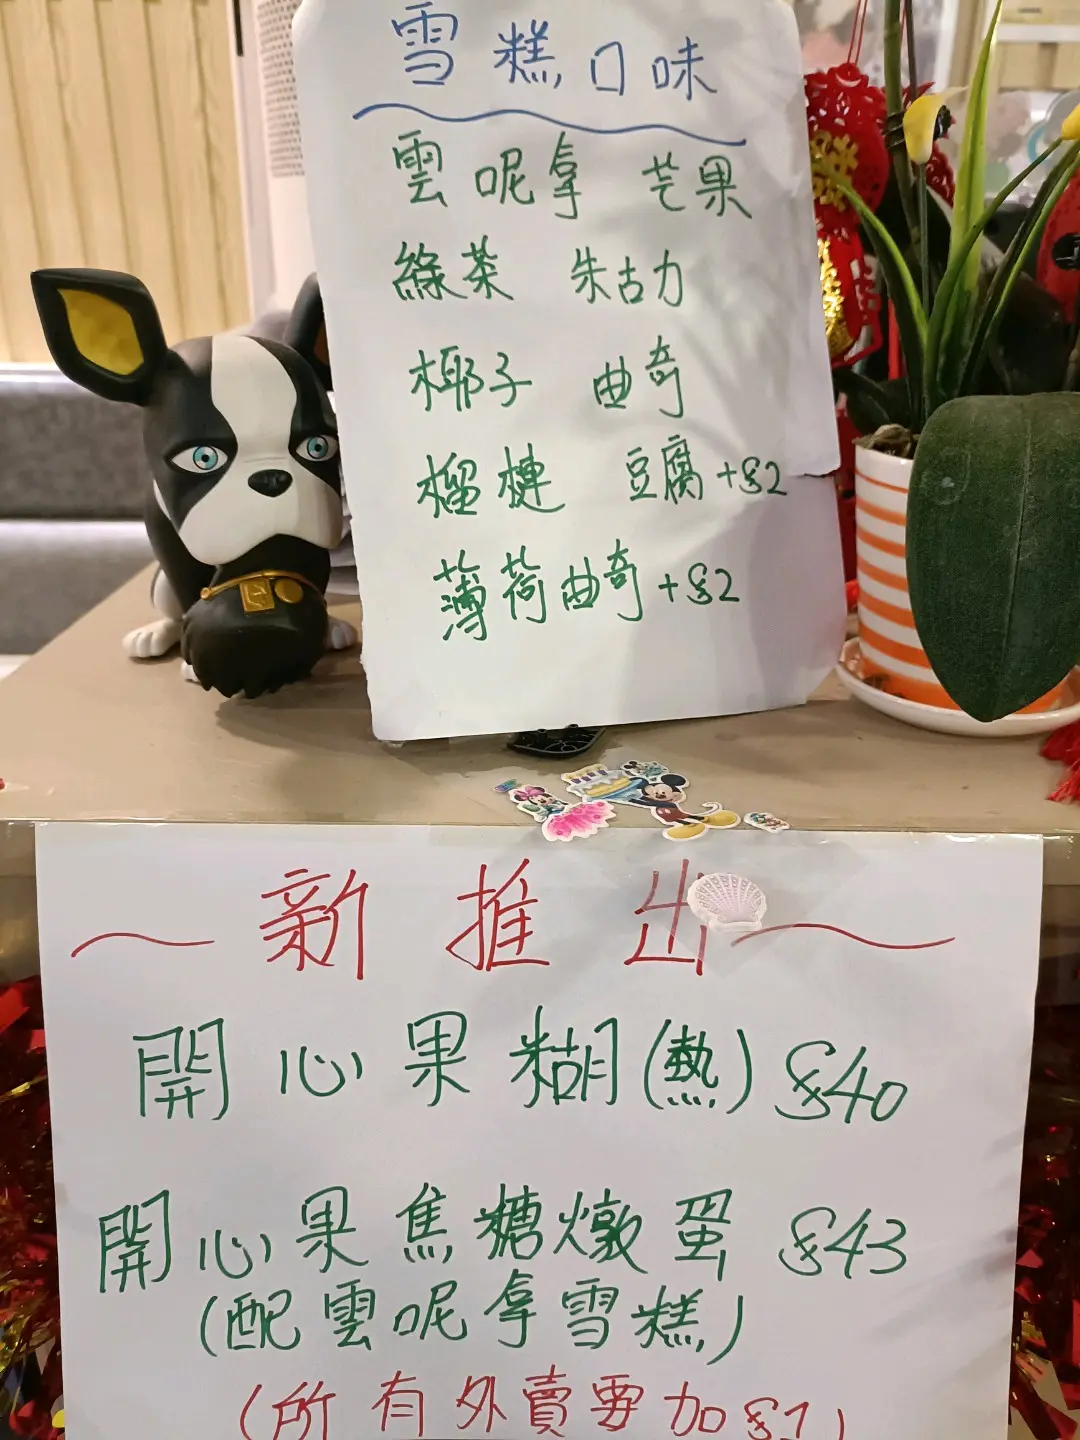 雪糕口味
雲呢拿 芒果
綠茶 朱古力
椰子 曲奇
榴槤 豆腐+$2
薄荷曲奇+$2
新推出
開心果糊(熱) $40
開心果焦糖燉蛋 $43
(配雲呢拿雪糕)
(所有外賣要加$1)